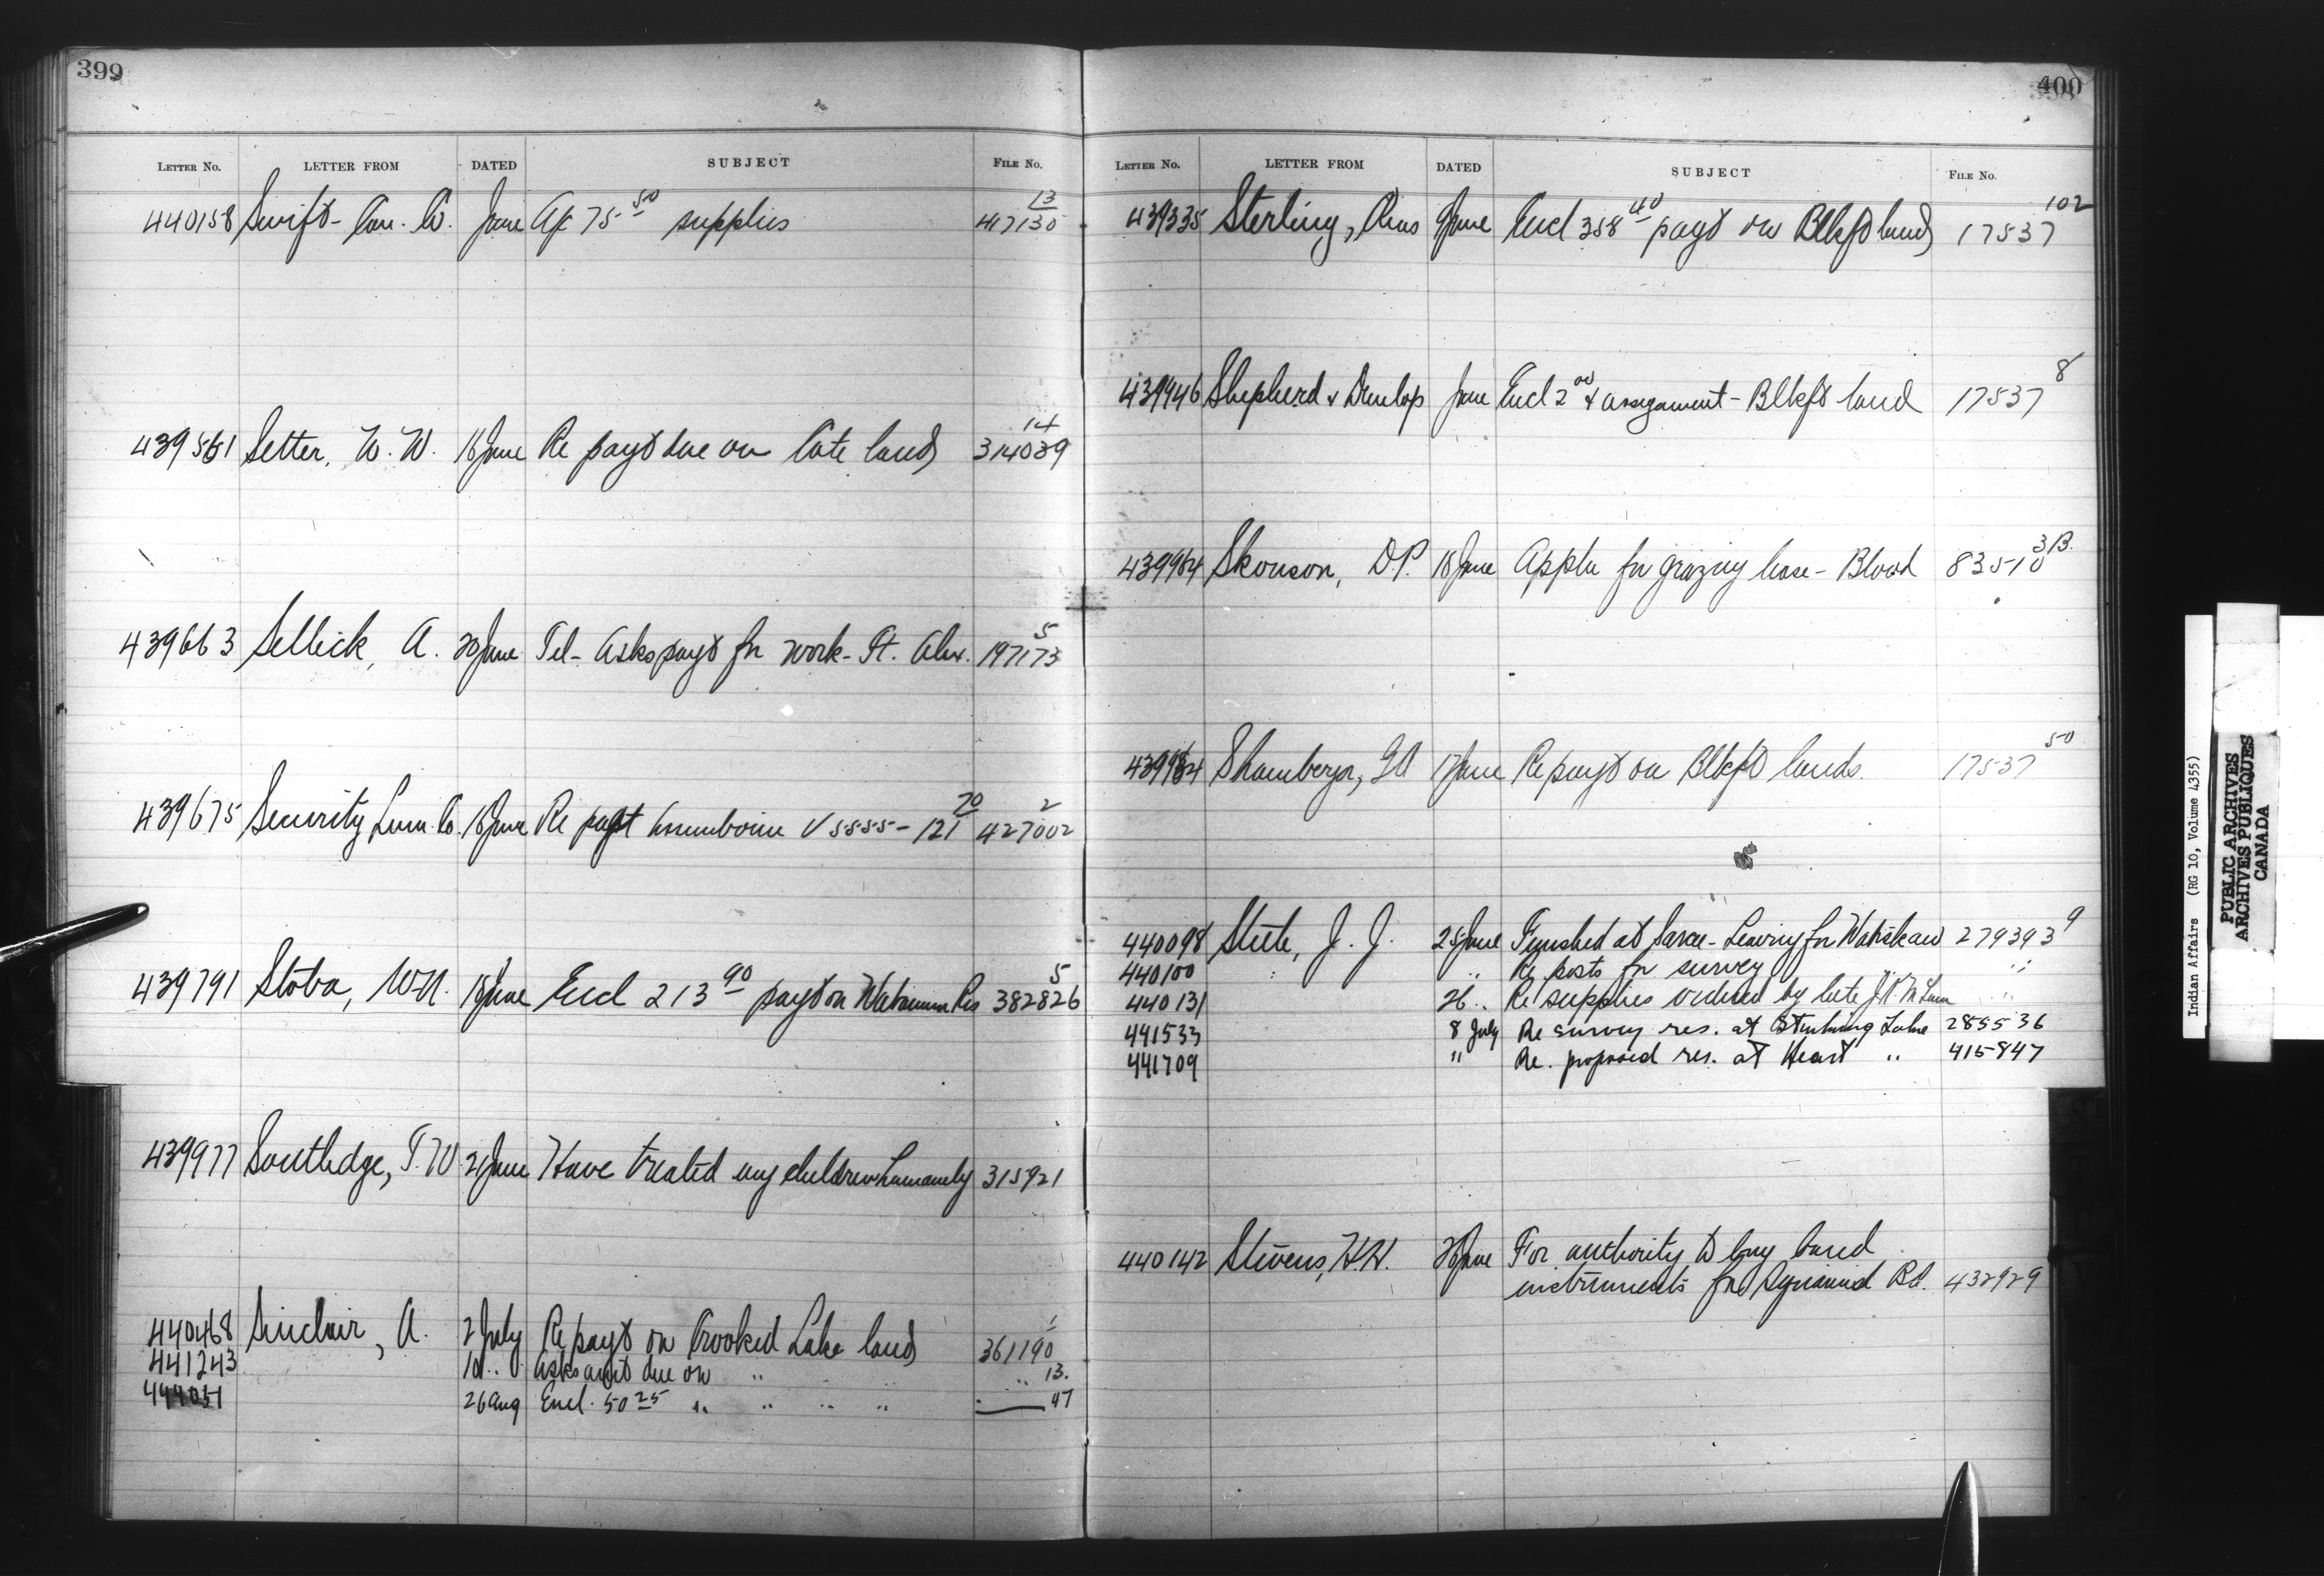 399
LETTER No. LETTER FROM DATED SUBJECT FILE No.
440158 Swift-Can. Co. June A/c 75 50 supplies 417130 13
439561 Setter, W. W. 18 June Re payt due on Cote lands 314039 14
439663 Sellick, A. 20 June Tel- Asks payt for work- Ft. Alex. 197173 5
439675 Security Lum. Co. 18 June Re payt V 5555- 121 70 427002 2
439791 Stoba, 18 June Encl 213 90 payt on Res 382826 5
439977 Southedge, T. W 21 June Have treated my children humanely 315921
440468 Sinclair, A. 2 July Re payt on Crooked Lake lands 361190 1
441243 10 " Asks amt due on " " 13.
444051 26 Aug Encl. 50 25 " " " " 47
400
LETTER No. LETTER FROM DATED SUBJECT FILE No.
439335 Sterling, 9 June Encl 358 40 payt on Blkft lands 17537 102
439946 Shepherd & Dunlop June Encl 2 00 & assignment - Blkft land 17537 8
439984 Skouson, D.P. 18 June Appln for grazing lease - Blood 83510 3B.
Shamberger, 17 June Re payt on Blkft lands. 17537 50
440098 Steele, J. J. 25 June Finished at Sarcee - Leaving for Wabiskaw 279393 9
440100 " Re posts for survey "
440131 26 " Re supplies ordered by late J.K. McLean "
441533 8 July Re survey res. at Sturgeon Lake 285536
441709 " Re. proposed res. at Heart " 415847
440142 Stevens, H.H. 26 June For authority to buy band
instruments for Squamish Bd. 432929
Indian Affairs (RG 10, Volume 4355)
PUBLIC ARCHIVES
ARCHIVES PUBLIQUES
CANADA